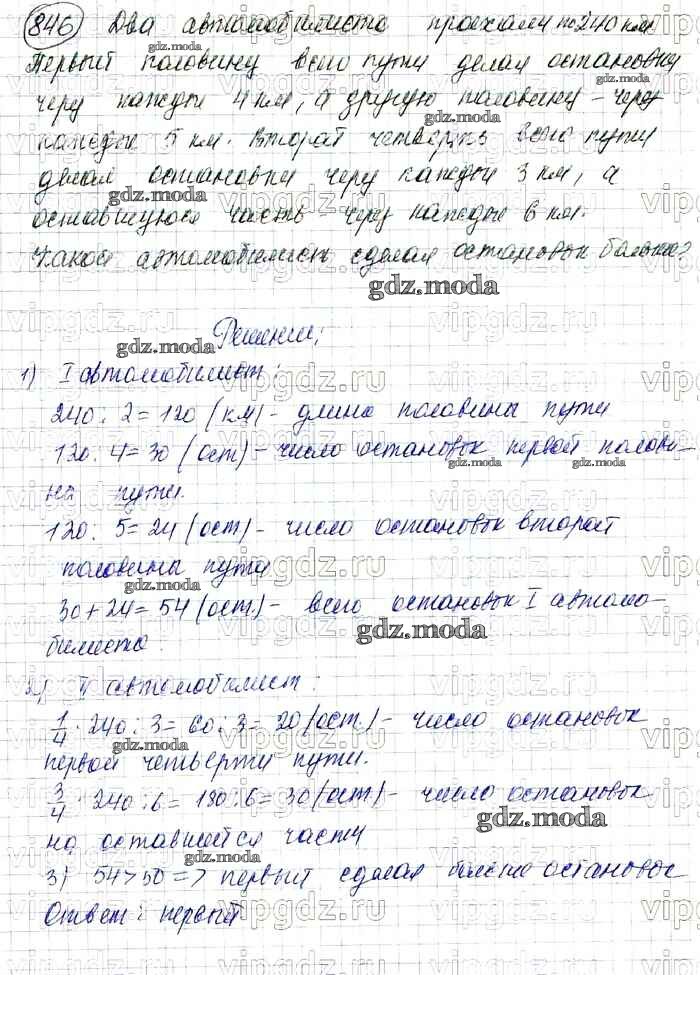 846 Два автомобилиста проехали по 240 км
Первый половину всего пути делал остановку
через каждые 4 км, а другую половину – через
каждые 5 км. Второй четверть всего пути
делал остановки через каждые 3 км, а
оставшуюся часть через каждые 6 км.
Какой автомобилист сделал остановок больше?
Решение:
1) I автомобилист:
240 : 2 = 120 (км) - длина половины пути
120 : 4 = 30 (ост) - число остановок первой полови-
ны пути.
120 : 5 = 24 (ост) - число остановок второй
половины пути
30 + 24 = 54 (ост.) - всего остановок I автомо-
билиста.
2) II автомобилист:
1/4 · 240 : 3 = 60 : 3 = 20 (ост.) - число остановок
первой четверти пути.
3/4 · 240 : 6 = 180 : 6 = 30 (ост) - число остановок
на оставшейся части
3) 54 > 50 => первый сделал больше остановок
Ответ: первый
gdz.moda
vipgdz.ru